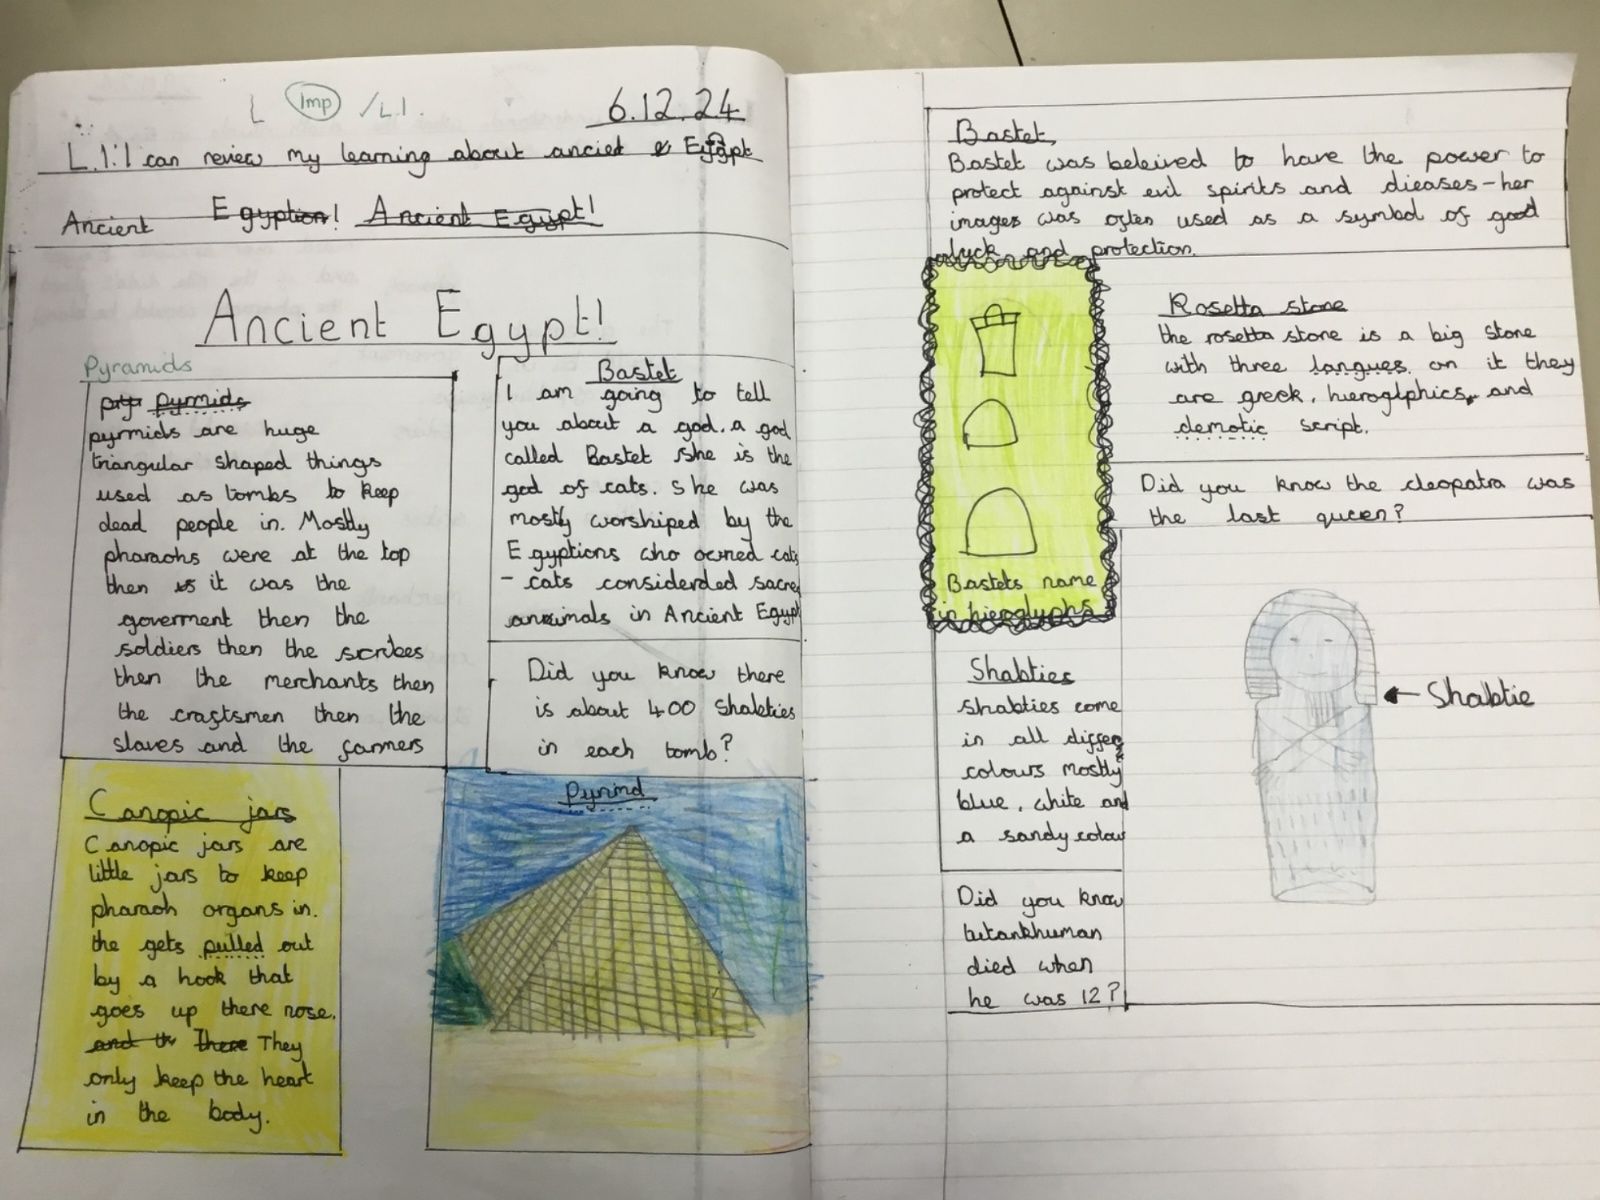 L Imp /L.I.
6.12.24
L.I: I can review my learning about anciet Egypt
Ancient Egyption! Ancient Egypt!
Ancient Egypt!
Pyramids
pyr pyrmids
pyrmids are huge
triangular shaped things
used as tombs to keep
dead people in. Mostly
pharaohs were at the top
then it was the
goverment then the
soldiers then the scribes
then the merchants then
the craftsmen then the
slaves and the farmers
Bastet
I am going to tell
you about a god. a god
called Bastet she is the
god of cats. she was
mostly worshiped by the
Egyptions who owned cats
- cats considerded sacred
animals in Ancient Egypt
Did you know there
is about 400 Shabties
in each tomb?
Canopic jars
Canopic jars are
little jars to keep
pharaoh organs in.
the gets pulled out
by a hook that
goes up there nose.
and th There They
only keep the heart
in the body.
Pyrimd
Bastet
Bastet was beleived to have the power to
protect against evil spirits and dieases - her
images was often used as a symbol of good
luck and protection.
Bastets name
in hieroglyphs
Rosetta stone
the rosetta stone is a big stone
with three langues on it they
are greek, hieroglphics, and
demotic script.
Did you know the cleopatra was
the last queen?
Shabties
shabties come
in all differ
colours mostly
blue, white and
a sandy colour
Shabtie
Did you know
tutankhuman
died when
he was 12?